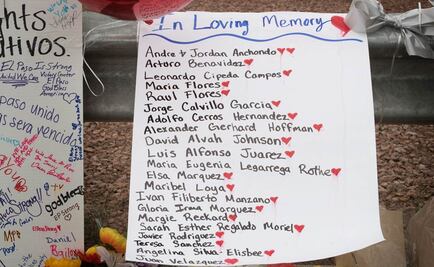 nts
tivos.
El Paso IS
Strong
United We Can
Victory Center
El Paso
God Bless
American
paso unido
as sera vencido
god bless
MFP
Daniel
In Loving Memory
Andre & Jordan Anchondo
Arturo Benavidez
Leonardo Cipeda Campos
Maria Flores
Raul Flores
Jorge Calvillo Garcia
Adolfo Cerros Hernandez
Alexander Gerhard Hoffman
David Alvah Johnson
Luis Alfonso Juarez
Maria Eugenia Legarrega Rothe
Elsa Marquez
Maribel Loya
Ivan Filiberto Manzano
Gloria Irma Marquez
Margie Reckard
Sarah Esther Regalado Moriel
Javier Rodriguez
Teresa Sanchez
Angelina Silva-Elisbee
Juan Velazquez